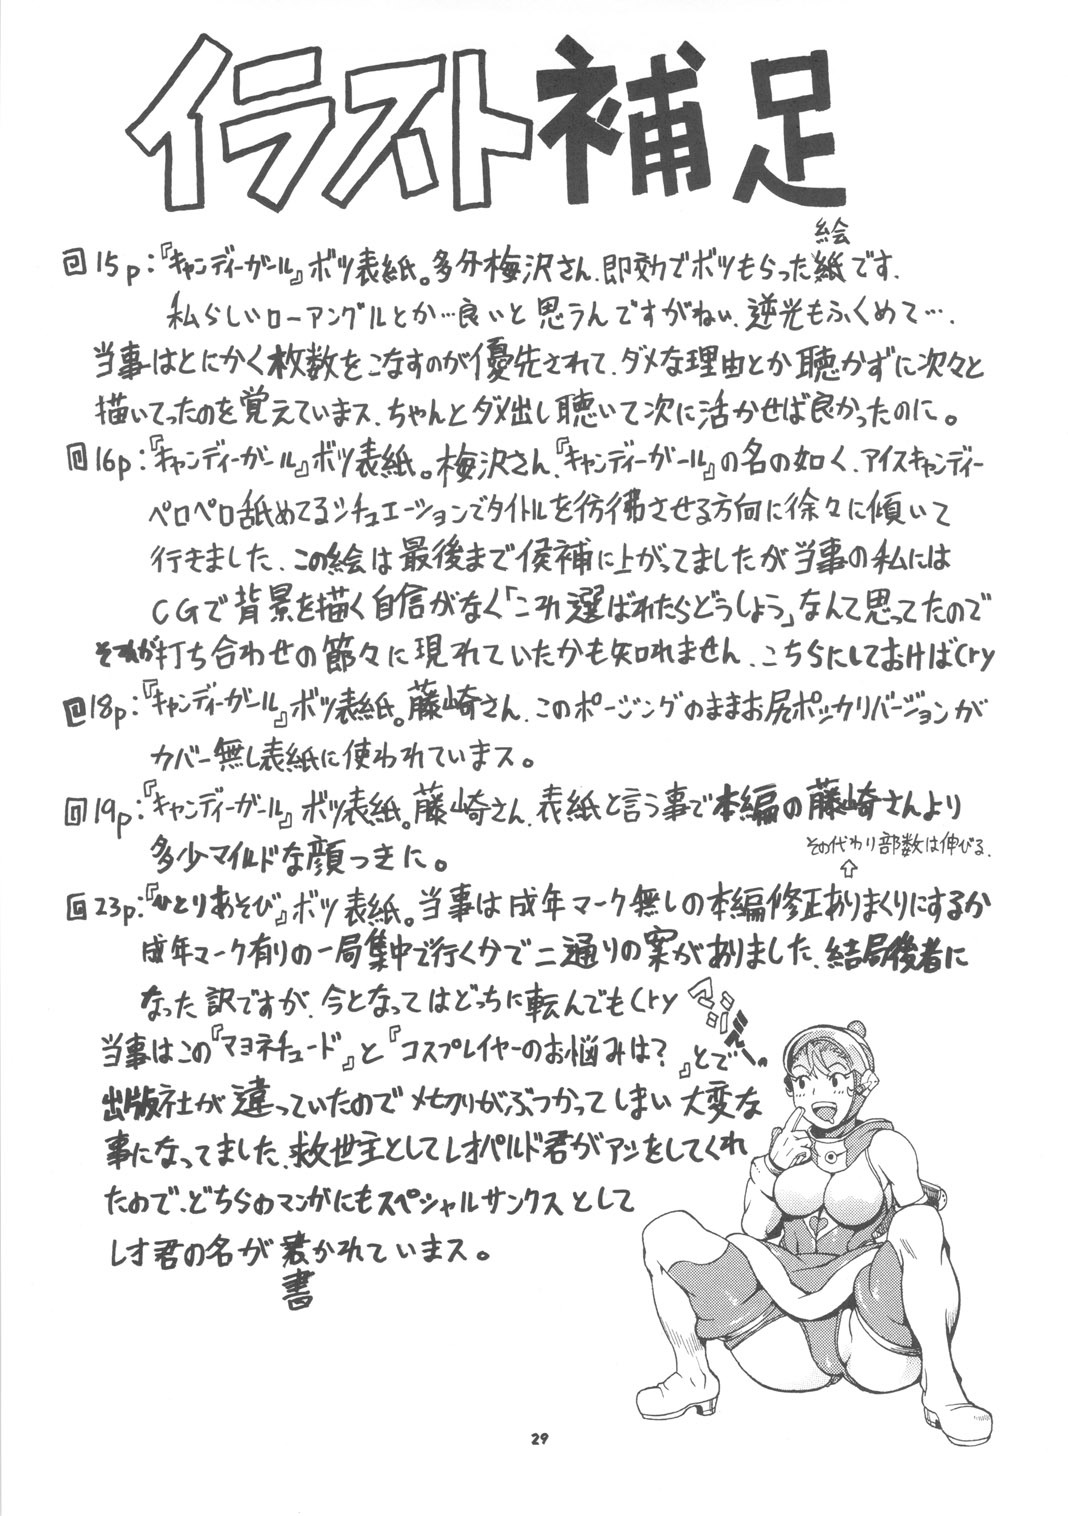 イラスト補足
@15p:『キャンディーガール』ボツ表紙。多分梅沢さん、即効でボツもらった紙です、
絵
私らしいローアングルとか…良いと思うんですがねぃ、逆光もふくめて…、
当事はとにかく枚数をこなすのが優先されて、ダメな理由とか聴かずに次々と
描いてったのを覚えていまス、ちゃんとダメ出し聴いて次に活かせば良かったのに。
@16p:『キャンディーガール』ボツ表紙。梅沢さん、『キャンディーガール』の名の如く、アイスキャンディー
ペロペロ舐めてるシチュエーションでタイトルを彷彿させる方向に徐々に傾いて
行きました、この絵は最後まで候補に上がってましたが当事の私には
CGで背景を描く自信がなく「これ選ばれたらどうしよう」なんて思ってたので
それが打ち合わせの節々に現れていたかも知れません、こちらにしておけばCry
@18p:『キャンディーガール』ボツ表紙。藤崎さん、このポージングのままお尻ポッカリバージョンが
カバー無し表紙に使われていまス。
@19p:『キャンディーガール』ボツ表紙。藤崎さん、表紙と言う事で本編の藤崎さんより
多少マイルドな顔つきに。
その代わり部数は伸びる、
⇧
@23p:『ひとりあそび』ボツ表紙。当事は成年マーク無しの本編修正ありまくりにするか
成年マーク有りの一局集中で行くかで二通りの案がありました、結局後者に
なった訳ですが、今となってはどっちに転んでもCry
当事はこの『マヨネチュード』と『コスプレイヤーのお悩みは?』とで
出版社が違っていたのでメセクリがぶつかってしまい大変な
事になってました、救世主としてレオパルド君がアシをしてくれ
たので、どちらのマンガにもスペシャルサンクスとして
レオ君の名が君かれていまス。
書
29